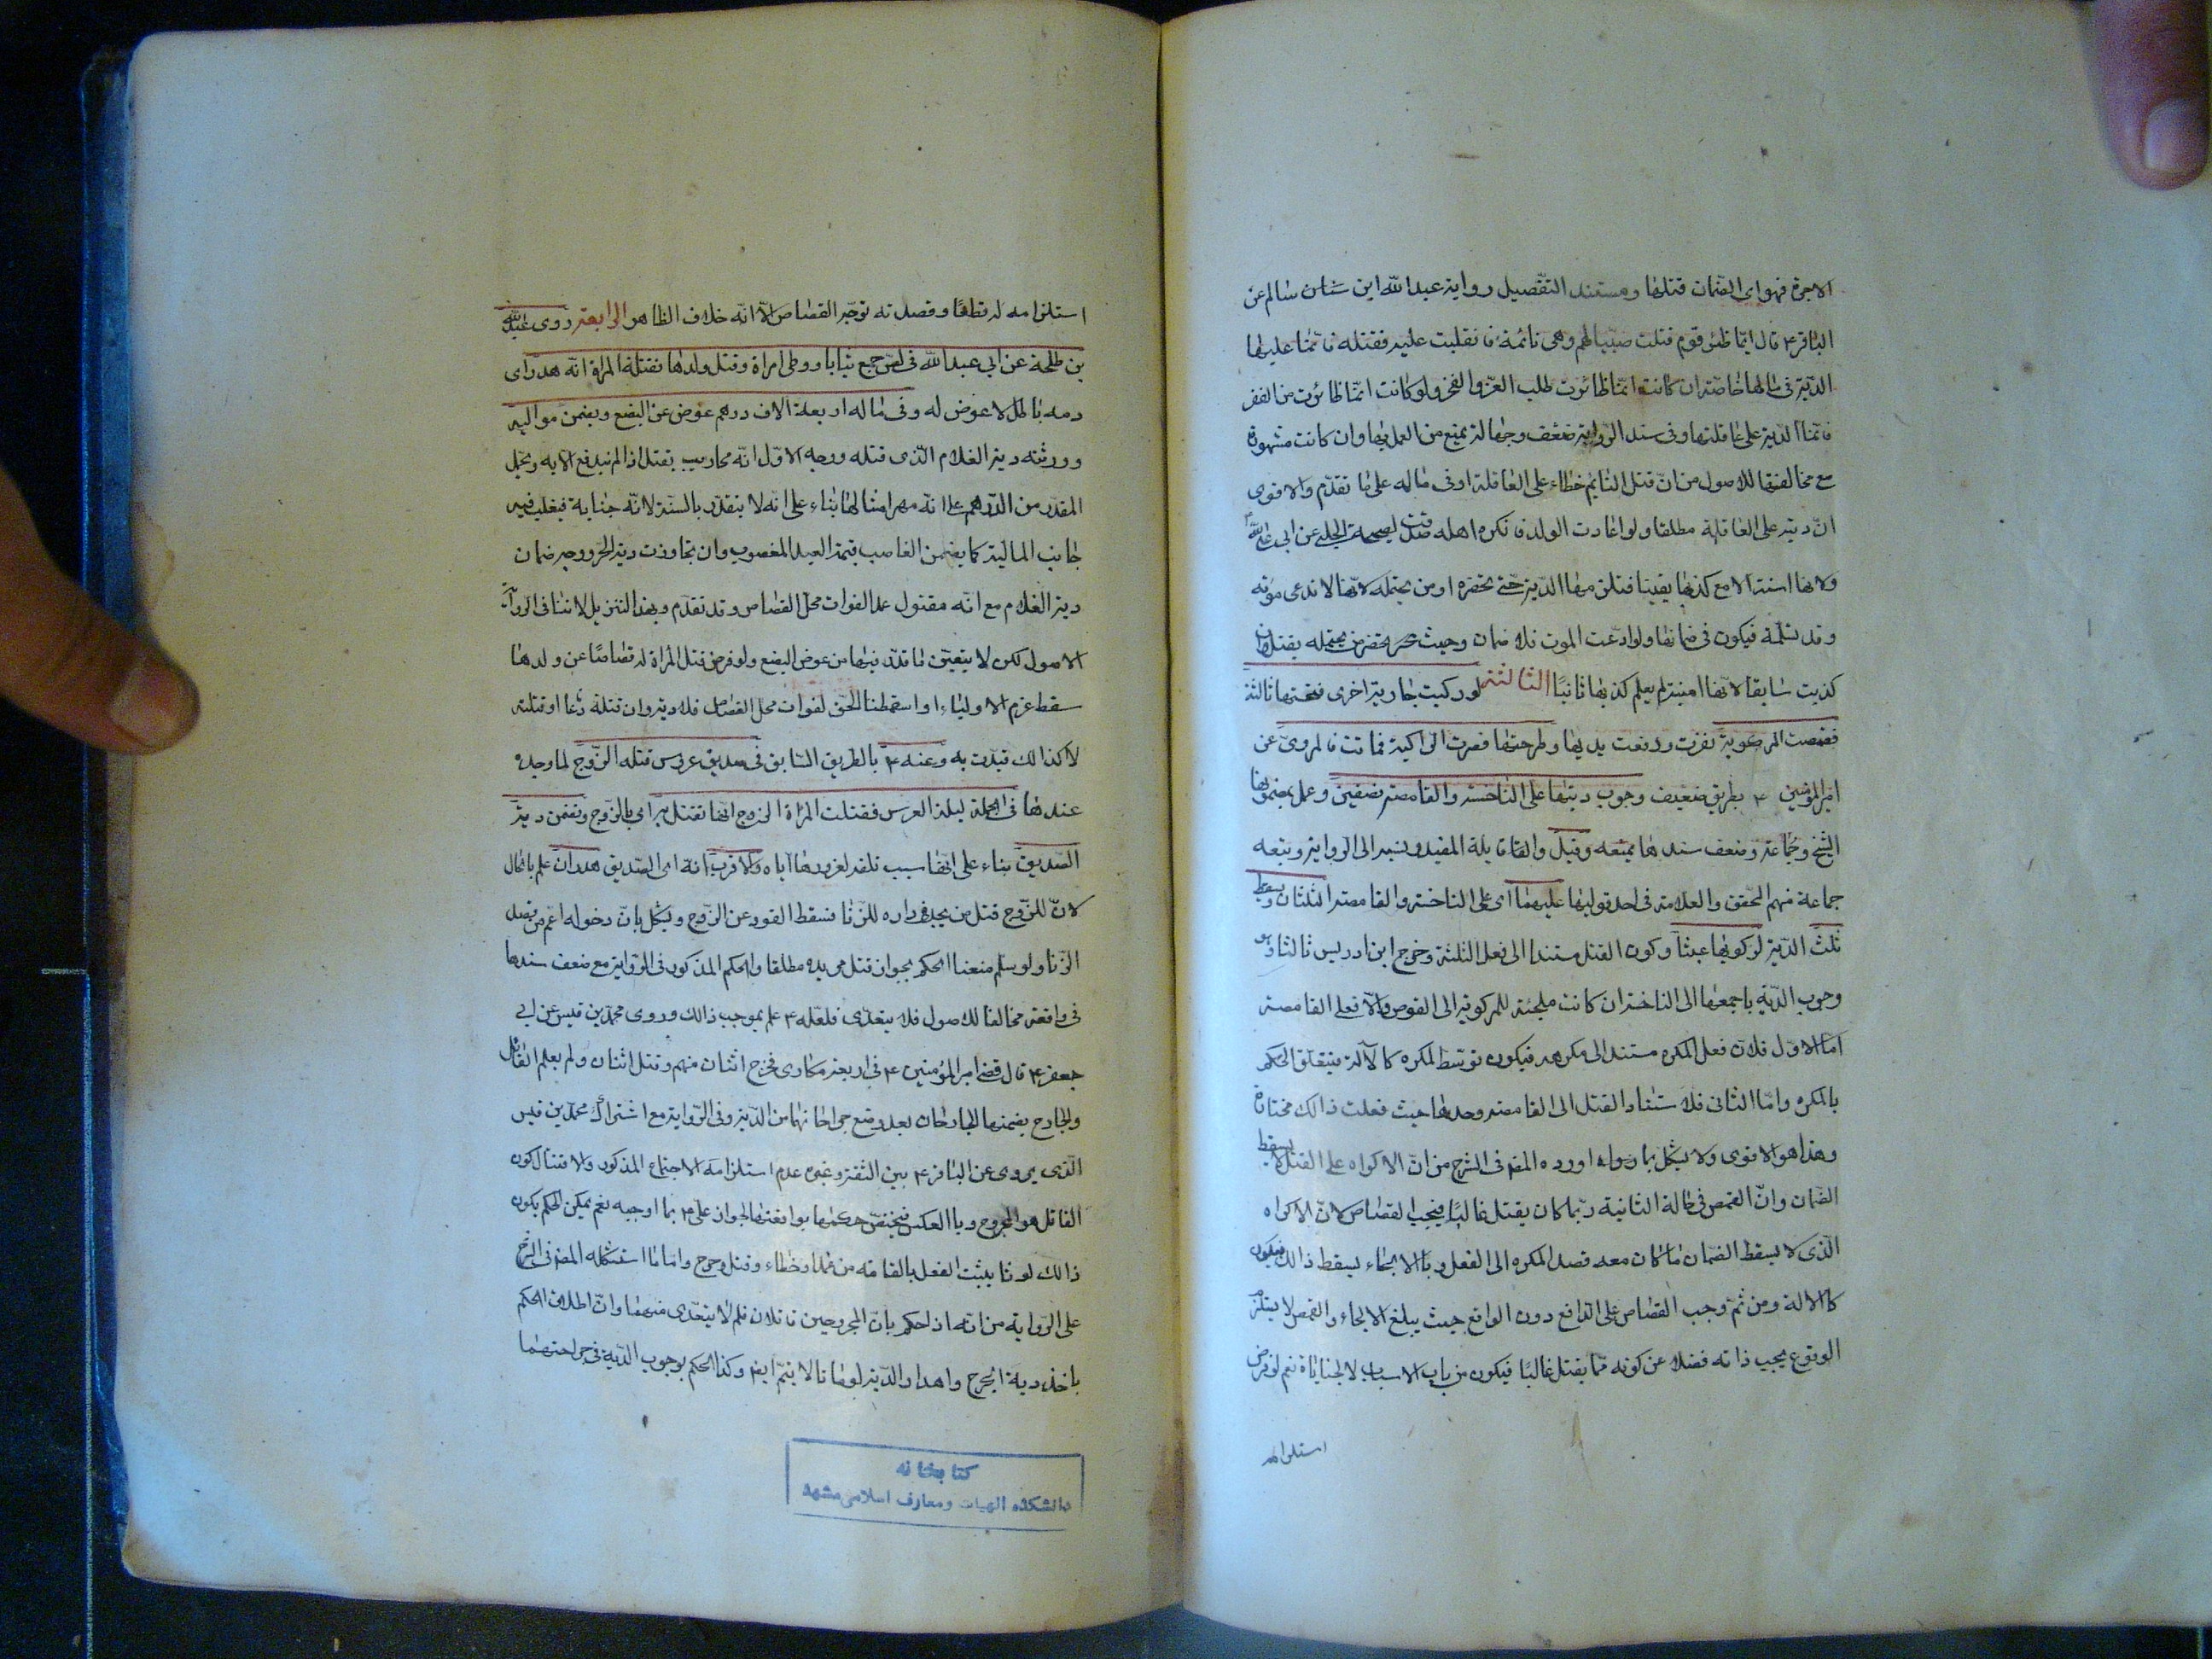 الاجرة فهو اى الضمان قتلها ومستند التفصيل رواية عبد الله ابن سنان سالم عن
الباقر ع قال ايّما ظئر قوم قتلت صبيّا لهم وهى نائمة فانقلبت عليه فقتله فانّما عليها
الديّة فى مالها خاصّة ان كانت انمّا ظائرت طلب العزّ والفخر ولو كانت انمّا ظائرت من الفقر
فانمّا الديّة على عاقلتها وفى سند الرواية ضعف وجهالة يمنع من العمل بها وان كانت مشهورة
مع مخالفتها للاصول من انّ قتل النايم خطاء على العاقلة او فى ماله على ما تقدّم والاقوى
انّ ديته على العاقلة مطلقا ولو اعادت الولد فانكره اهله صدّقت لصحيحة الحلبى عن ابى عبد الله ع
ولانها امينة الا مع كذبها يقينا فتلزمها الديّة حتّى تحضره او من يحتمله لانّها لا تدعى موته
وقد تسلّمته فيكون فى ضمانها ولو ادعت الموت فلا ضمان وحيث تحضر من يحتمله يقبل وان
كذبت سابقا لانّها امينة لم يعلم كذبها ثانيًا الثالثة لو ركبت جارية اخرى فنخستها ثالثة
فقمصت المركوبة نفرت ورفعت يديها وطرحتها فصرعت الراكبة فماتت فالمروىّ عن
امير المؤمنين ع بطريق ضعيف وجوب ديتها على الناخسة والقامصة نصفين وعمل بمضمونها
الشيخ وجماعة وضعف سندها يمنعه وقيل والقائله المفيد ونسبه الى الرواية وتبعه
جماعة منهم المحقق والعلامة فى احد قوليها عليهما اى على الناخسة والقامصة الثلثان ويسقط
ثلث الديّة لركوبها عبثًا وكون القتل مستندا الى فعل الثلثة وخرج ابن ادريس ثالثا وهو
وجوب الديّة باجمعها الى الناخسة ان كانت ملجئة للمركوبة الى القموص والاّ فعلى القامصة
امّا الاوّل فلانّ فعل المكره مستند الى مكرهه فيكون توسّط المكره كالآلة فيتعلق الحكم
بالمكره وامّا الثانى فلاستناد القتل الى القامصة وحدها حيث فعلت ذالك مختارة
وهذا هو الاقوى ولا يشكل بما اورده المصّ فى الشرح من انّ الاكراه على القتل لا يسقط
الضمان وانّ القمص فى حالة الثانية ربّما كان يقتل غالبًا فيجب القصاص لانّ الاكراه
الّذى لا يسقط الضمان ما كان معه قصد المكره الى الفعل وبالالجاء يسقط ذالك فيكون
كالالة ومن ثمّ وجب القصاص على الدافع دون الواقع حيث يبلغ الالجاء والقمص لا يستلزم
الوقوع بحيب ذاته فضلا عن كونه ممّا يقتل غالبًا فيكون من باب الاسباب لا الجنايات نعم لو فرض
استلزامه
استلزامه له قطعًا وقصدته توجّه القصاص الاّ انه خلاف الظاهر الرابعة روى عبد الله
بن طلحة عن ابى عبد الله فى لصّ جمع ثيابا ووطى امراة وقتل ولدها فقتلته المراة انّه هدر اى
دمه باطل لا عوض له وفى ماله اربعة الاف درهم عوض عن البضع ويضمن مواليه
وورثته دية الغلام الّذى قتله ووجه الاوّل انّه محارب يقتل اذا لم يندفع الاّ به ويحمل
المقدّر من الدرهم على انّه مهر امثالها بناء على انّه لا يتقدّر بالسنّة لانّه جناية فيغلب فيه
جانب الماليّة كما يضمن الغاصب قيمة العبد المغصوب وان تجاوزت دية الحرّ ووجه ضمان
دية الغلام مع انّه مقتول عمدا لفوات محلّ القصاص وقد تقدّم وبهذا التنزيل لا تنافى الرواية
الاصول لكن لا يتعيّن ما قدّر فيها من عوض البضع ولو فرض قتل المراة له قصاصًا عن ولدها
سقط غرم الاولياء او اسقطنا الحقّ لفوات محلّ القصاص فلا دية وان قتلة دفعا او قتلته
لا كذالك قيدت به وعنه ع بالطريق السّابق فى صديق عروس قتله الزّوج لما وجده
عندها فى الحجلة ليلة العرس فقتلت المراة الزوج انّها تقتل به اى بالزّوج وتضمن دية
الصّديق بناء على انّها سبب تلفه لغرورها ايّاه والاقرب انّه اى الصّديق هدر ان علم بالحال
لانّ للزّوج قتل من يجد فى داره للزنا فسقط القود عن الزّوج ويشكل بانّ دخوله اعمّ من قصد
الزنا ولو سلم منعنا الحكم بجواز قتل مريده مطلقا والحكم المذكور فى الرّواية مع ضعف سندها
فى واقعة مخالفا للاصول فلا يتعدّى فلعلّه ع علم بموجب ذالك وروى محمّد بن قيس عن ابى
جعفر ع قال قضى امير المؤمنين ع فى اربعة سكارى فجرح اثنان منهم وقتل اثنان ولم يعلم القاتل
والجارح يضمنها الجارحان بعد وضع جراحاتهما من الديّة وفى الرّواية مع اشتراك محمّد بن قيس
الّذى يروى عن الباقر ع بين الثقة وغيره عدم استلزامه الاجتماع المذكور والاقتتال كون
القاتل هو المجروح وبالعكس فيختصّ حكمها بواقعتها لجواز علمه ع بما اوجبه نعم يمكن الحكم بكون
ذالك لوثا يثبت الفعل بالقسامة من عمد او خطاء وقتل وجرح واما ما استشكله المصّ فى الشرح
على الرّواية من انّه اذا حكم بانّ المجروحين قاتلان فلم لا يتعدّى منهما وانّ اطلاق الحكم
باخذ دية الجرح واهدار الديّة لو ماتا لا يتمّ ايضا وكذا الحكم بوجوب الديّة فى جراحتهما
كتابخانه
دانشكده الهيات ومعارف اسلامى مشهد